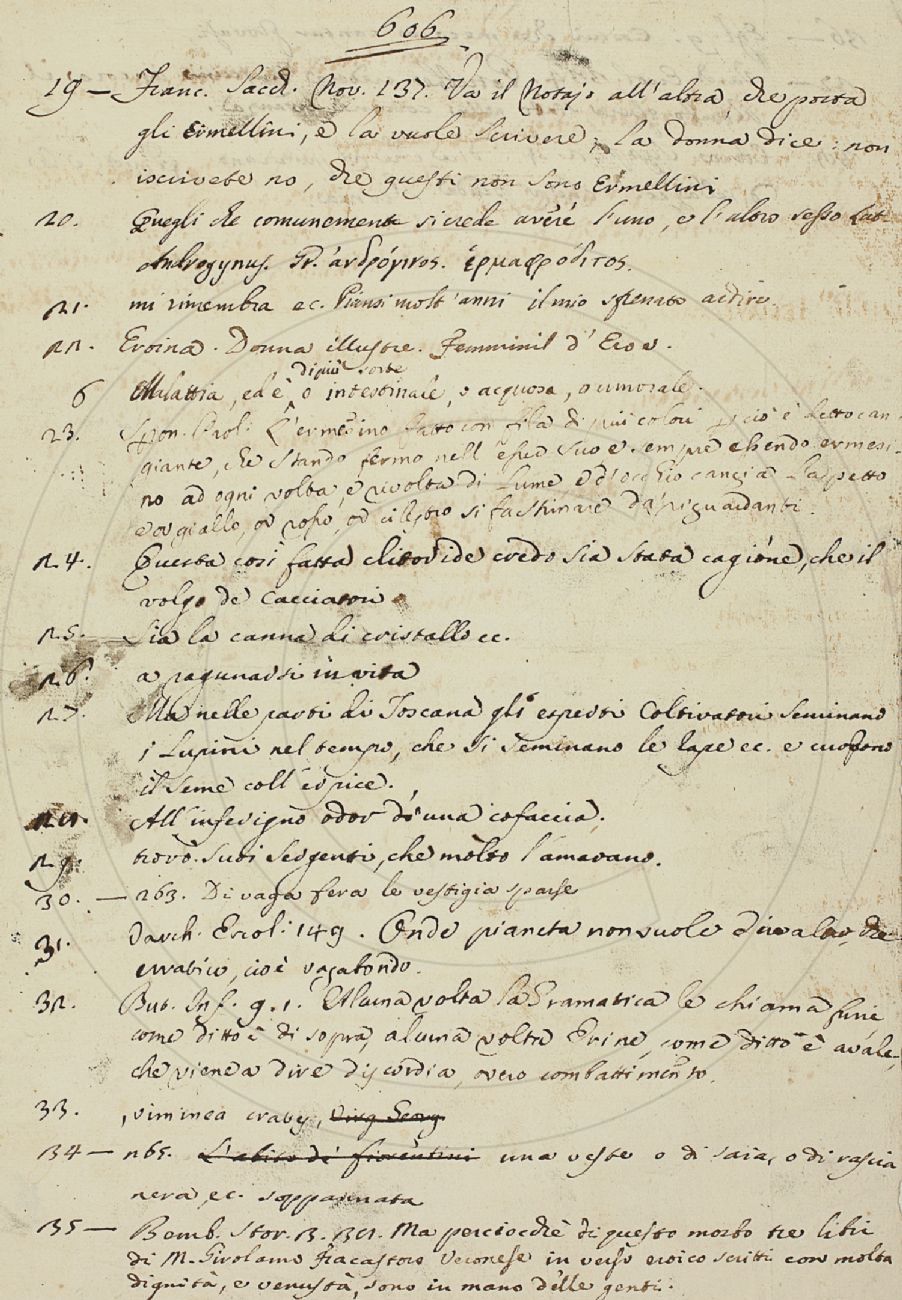 606
19 — Franc. Sacch. Nov. 137. Va il Notajo all'altra, che porta
gli Ermellini, e la vuole scrivere; la donna dice: non
iscrivete no, che questi non sono Ermellini
20. Quegli che comunemente si crede avere l'uno, e l'altro sesso Lat.
Androgynus. Gr. ἀνδρόγινος. ἑρμαφρόδιτος.
21. mi rimembra ec. Piansi molt'anni il mio sfrenato ardire
22. Eroina. Donna illustre. Femminil d'Eroe.
6 Malattia, ed è di più sorte o intestinale, o acquosa, o umorale.
23. L'ermesino fatto con fila di più colori perciò è detto can-
giante, che stando fermo nell' suo e sempre essendo ermesi-
no ad ogni volta, e rivolta di lume, e d'occhio cangia l'aspetto
e or giallo, or rosso, or cilestro si fa da' riguardanti.
24. Questa così fatta clitoride credo sia stata cagione, che il
volgo de' Cacciatori
25. — Sia la canna di cristallo ec.
26. a ragunarsi in vita
27. Ma nelle parti di Toscana gli esperti Coltivatori seminano
i Lupini nel tempo, che si seminano le rape ec. e cuoprono
il seme coll'erpice.
28. All'inferigno odor d'una cofaccia.
29. trovò suoi sergenti, che molto l'amavano.
30. — 263. Di vaga fera le vestigia sparse
31. Varch. Ercol. 149. Onde pianeta non vuole dir altro, che
erratico, cioè vagabondo.
32. But. Inf. 9. 1. Alcuna volta la Gramatica le chiama furie
come ditto è di sopra, alcuna volta Erine, come ditto è avale,
che viene a dire discordia, overo combattimento.
33. , viminea crates, Virg. Georg.
34 — 265. L'abito de' fiorentini una veste o di saia, o di rascia
nera, ec. soppannata
35 — Bemb. Stor. 3. 38. Ma perciocchè di questo morbo tre libri
di M. Girolamo Fracastoro Veronese in verso eroico scritti con molta
dignità, e venustà, sono in mano delle genti.